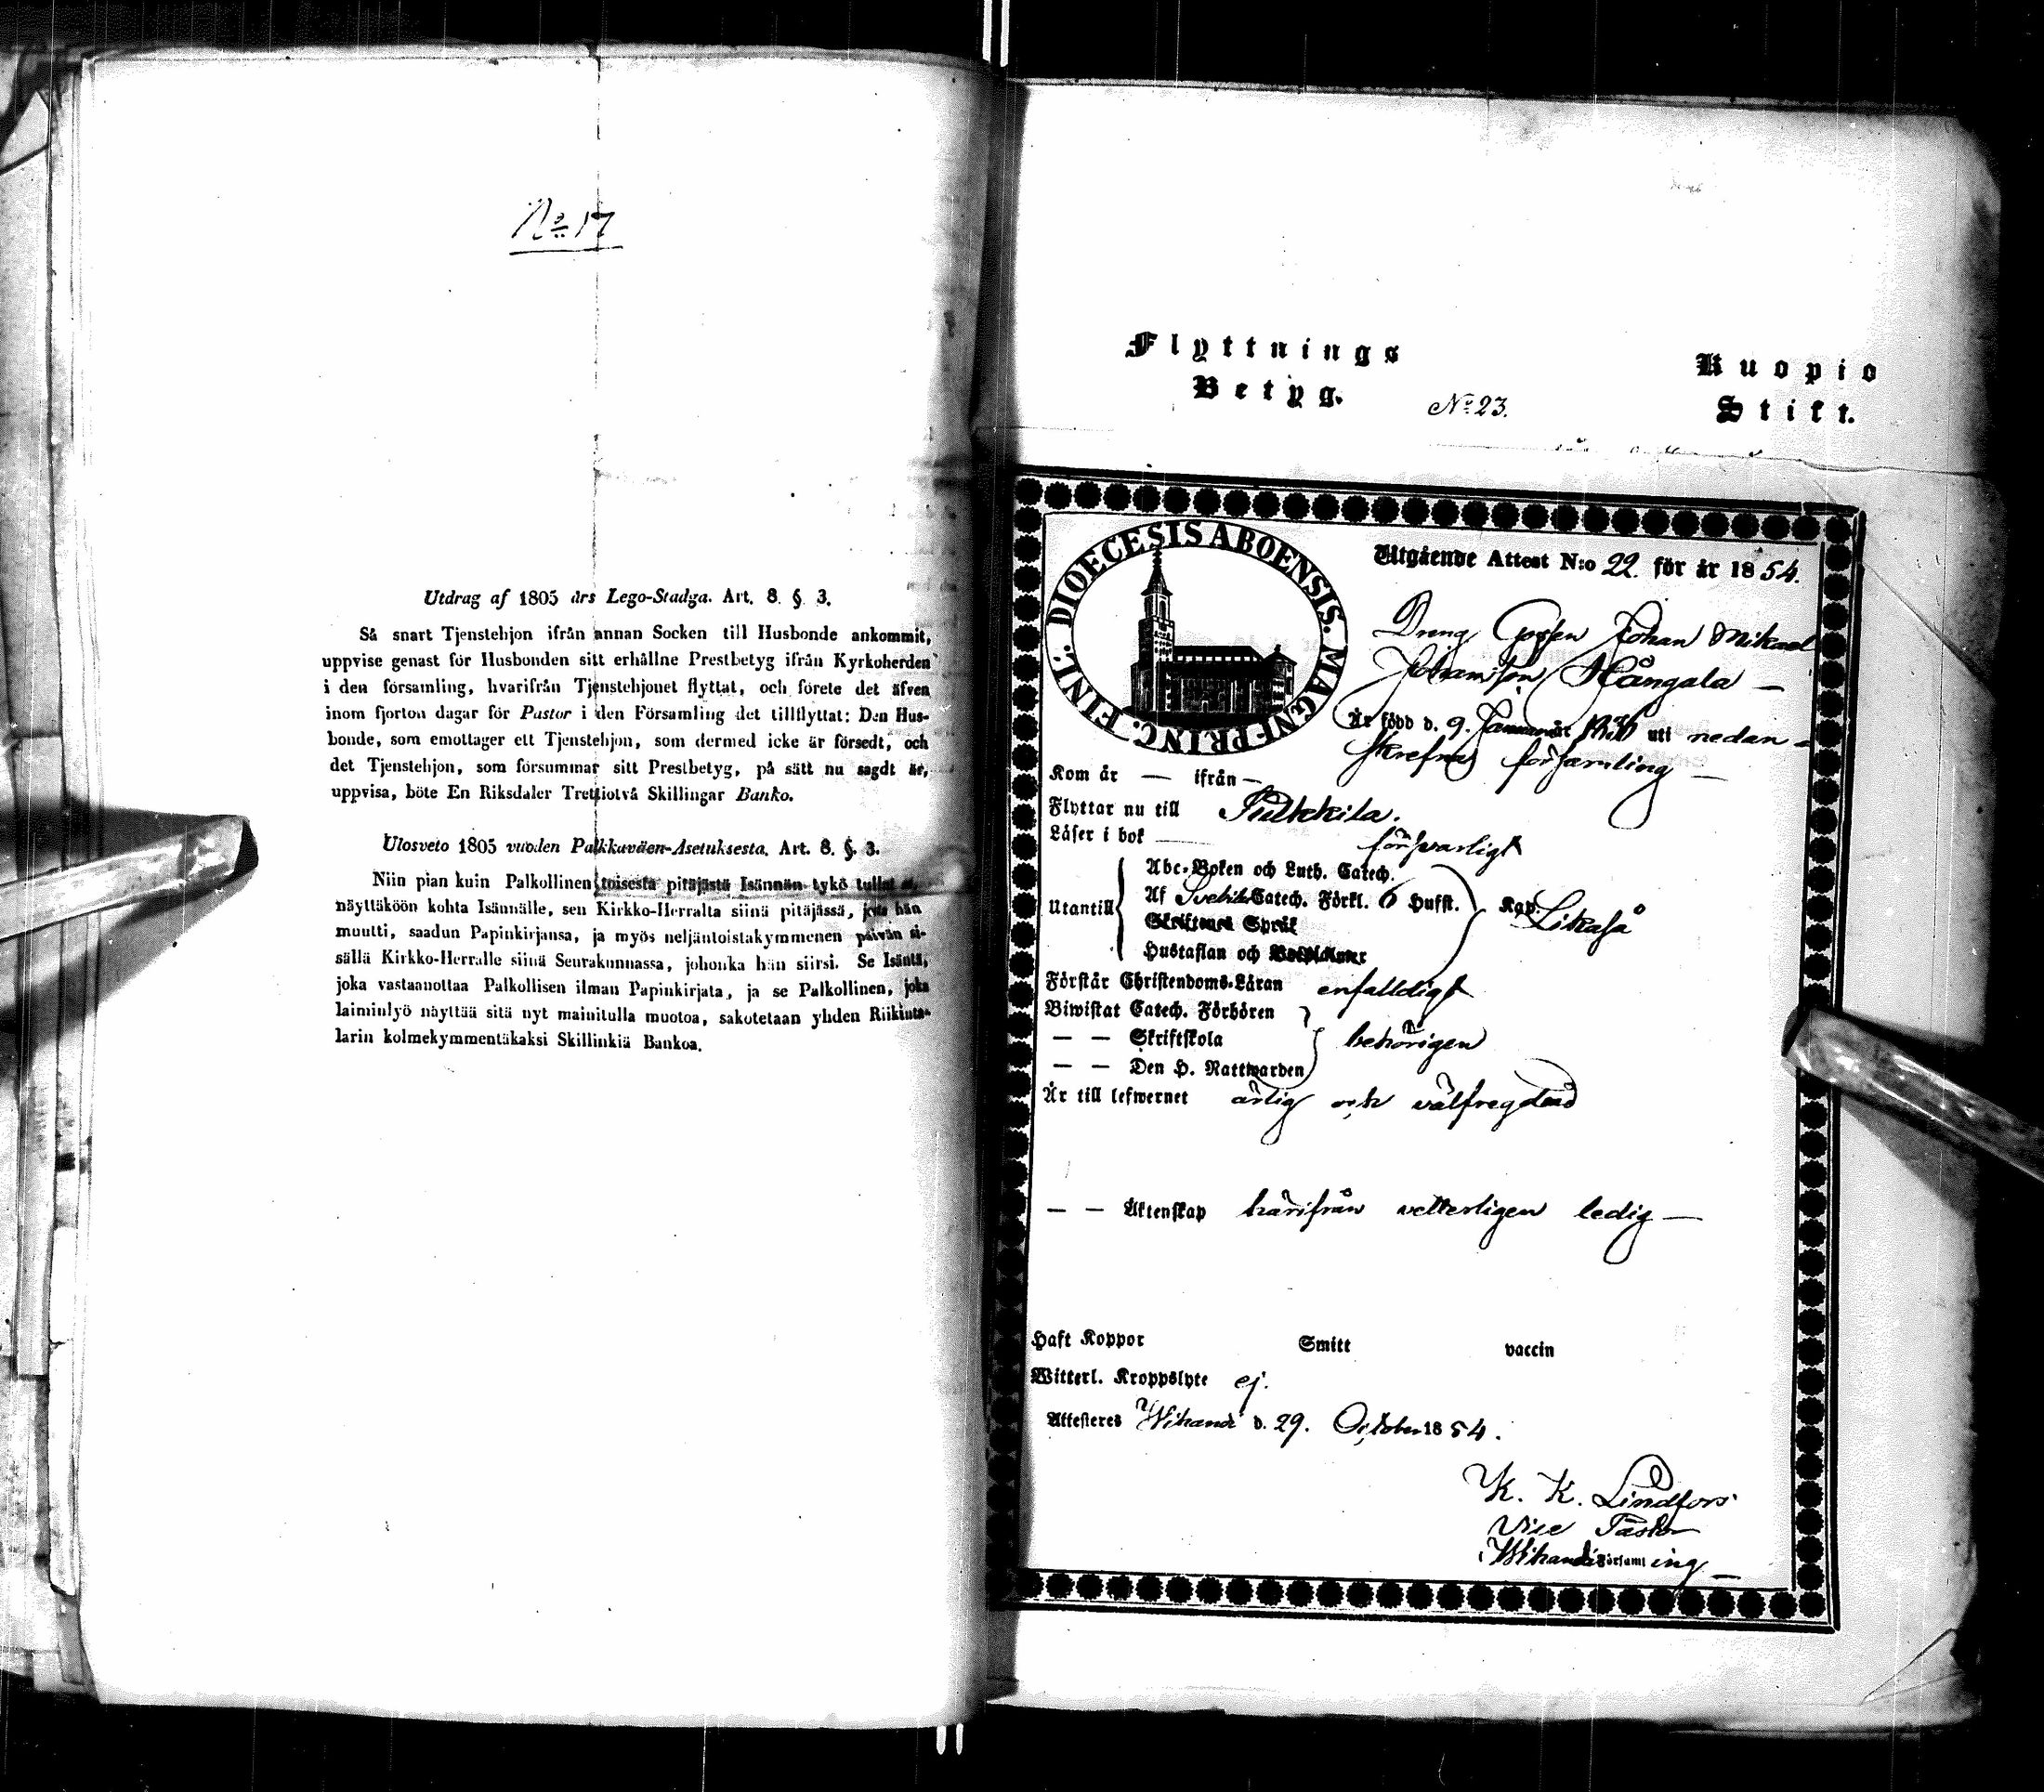 No 17
Utdrag af 1805 års Lego-Stadga. Art. 8. §. 3.
Så snart Tjenstehjon ifrån annan Socken till Husbonde ankommit,
uppvise genast för Husbonden sitt erhållne Prestbetyg ifrån Kyrkoherden
i den församling, hvarifrån Tjenstehjonet flyttat, och förete det äfven
inom fjorton dagar för Pastor i den Församling det tillflyttat: Den Hus-
bonde, som emottager ett Tjenstehjon, som dermed icke är försedt, och
det Tjenstehjon, som försummar sitt Prestbetyg, på sätt nu sagdt är,
uppvisa, böte En Riksdaler Trettiotvå Skillingar Banko.
Ulosveto 1805 vuoden Palkkaväen-Asetuksesta. Art. 8. §. 3.
Niin pian kuin Palkollinen toisesta pitäjästä Isännän tykö tullut
näyttäköön kohta Isännälle, sen Kirkko-Herralta siinä pitäjässä, josta hän
muutti, saadun Papinkirjansa, ja myös neljäntoistakymmenen päivän si-
sällä Kirkko-Herralle siinä Seurakunnassa, johonka hän siirsi. Se Isäntä,
joka vastaanottaa Palkollisen ilman Papinkirjata, ja se Palkollinen, joka
laiminlyö näyttää sitä nyt mainitulla muotoa, sakotetaan yhden Riikinta-
larin kolmekymmentäkaksi Skillinkiä Bankoa.
Flyttnings
Betyg.
No 23.
Kuopio
Stift.
DIOECESIS ABOENSIS. MAGNI PRINC. FINL.
Utgående Attest N:o 22. för år 1854.
Dreng Gossen Johan Mikael
Johansson Hångala —
Är född d. 9. Januarii uti nedan-
skrefna församling —
Kom år — ifrån —
Flyttar nu till Pulkkila.
Läser i bok försvarligt
Abc-Boken och Luth. Catech.
Utantill Af Svebilii Catech. Förkl. 6 Hufst. Kap. Likaså
Skriftenes Språk
Hustaflan och
Förstår Christendoms-Läran enfaldigt
Biwistat Catech. Förhören
— — Skriftskola behörigen
— — Den H. Nattwarden
Är till lefwernet ärlig och välfregdad
— — Äktenskap härifrån vetterligen ledig —
Haft Koppor Smitt vaccin
Witterl. Kroppslyte ej.
Attesteras Wihandi d. 29. October 1854.
K. K. Lindfors
Vice Pastor
Wihandi Församling —